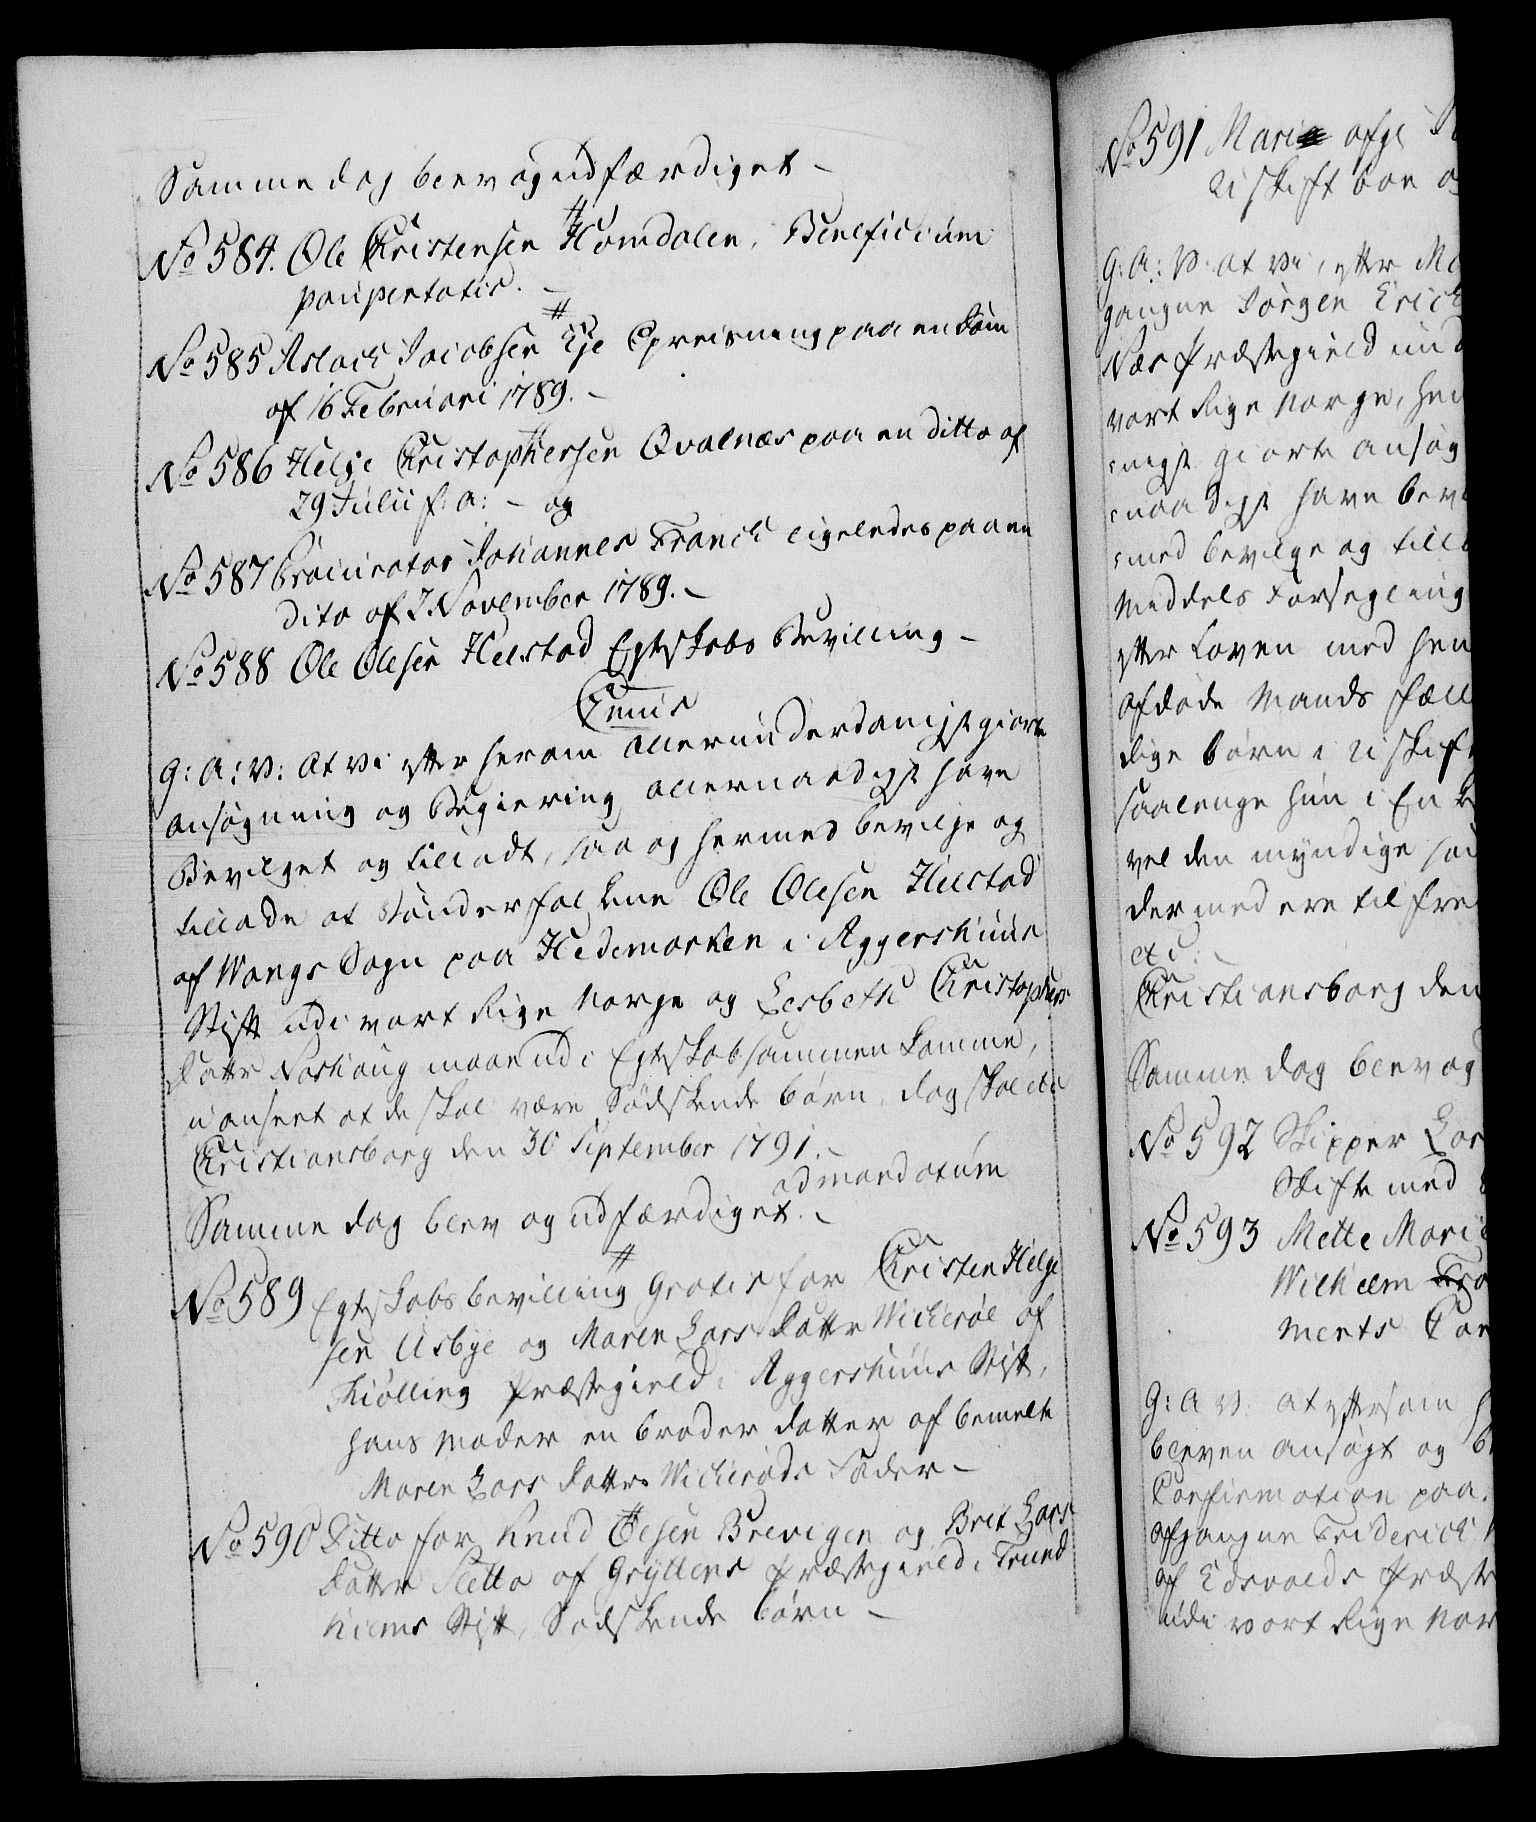 Samme dag blev og udfærdiget –
No 584. Ole Christensen Homdalen, Beneficium
paupertatis. –
No 585 Aslach Jacobsen Eje Opreisning paa en Dom
af 16 Februari 1789. –
No 586 Helge Christophersen Qvalnæs paa en ditto af
29 Julii s: a: – og
No 587 Procurator Johannes Franck ligeledes paa en
dito af 7 November 1789. –
No 588 Ole Olesen Helstad Egteskabs Bevilling –
Cunis
G: A: V: at vi efter herom allerunderdanigst giorte
ansøgning og Begiering allernaadigst have
Bevilget og tilladt, saa og hermed bevilge og
tillade at Tønderfolkene Ole Olesen Hilstad
af Wangs Sogn paa Hedemarken i Aggershuus
Stift udi vort Rige Norge og Lisbeth Christophers
Datter Noshaug maae udi Egteskab sammen komme,
uanseet at de skal være Sødskende børn, dog skal etc
Christiansborg den 30 September 1791. –
ad mandatum
Samme dag blev og udfærdiget. –
No 589 Egteskabs bevilling Gratis for Christen Helge
sen Usbye og Maren Lars Datter Wickerøe af
Kiølling Præstegield i Aggershuus Stift,
hans Moder en broder datter af bemelte
Maren Lars Datters Wickerøds Fader –
No 590 Ditto for Knud Olsen Brevigen og Brit Lars
Datter Sletta af Gryttens Præstegield i Trund
hiems Stift, Sødskende børn –
No 591 Marie afge
Uskift boe
G: A: V: at vi, efter
gangne Jørgen Erich
Næs Præstegield
vort Rige Norge,
nigst giorte ansøg
naadigst have bev
med bevilge og till
Meddels Forsegling
efter Loven med hen
afdøde Mands fæll
dige børn i Uskif
saalenge hun i En
vel den myndige
dermed ere tilfre
etc. –
Christiansborg den
Samme dag blev og
No 592 Skipper Lar
Skifte med
No 593 Mette Mari
Wilhelm
ments Con
G: A V: at eftersom
bleven ansøgt og
Confirmation paa
afgangne Friderich
af Edsvolds Præste
udi vort Rige Nor